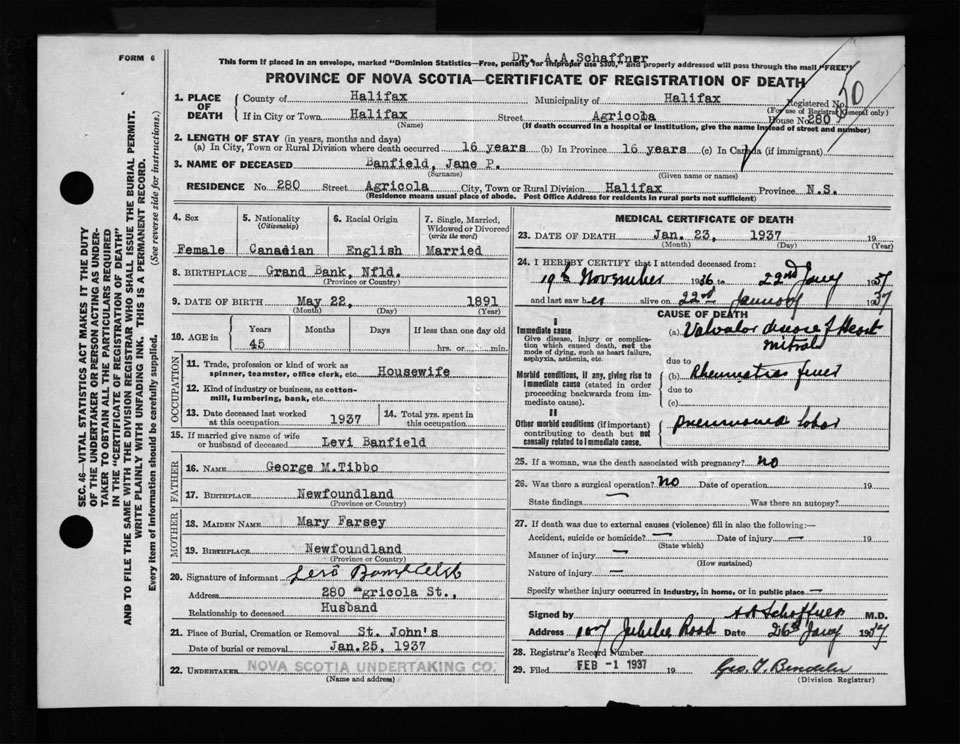 FORM 6
Dr. A.A.Schaffner
This form if placed in an envelope, marked "Dominion Statistics—Free, penalty for improper use $300," and properly addressed will pass through the mail "FREE"
PROVINCE OF NOVA SCOTIA—CERTIFICATE OF REGISTRATION OF DEATH
1. PLACE OF DEATH
County of Halifax Municipality of Halifax Registered No. 50
(For use of Registrar General only)
If in City or Town Halifax Street Agricola House No. 280
(Name) (If death occurred in a hospital or institution, give the name instead of street and number)
2. LENGTH OF STAY (in years, months and days)
(a) In City, Town or Rural Division where death occurred 16 years (b) In Province 16 years (c) In Canada (if immigrant)
3. NAME OF DECEASED Banfield, Jane P.
(Surname) (Given name or names)
RESIDENCE No. 280 Street Agricola City, Town or Rural Division Halifax Province N.S.
(Residence means usual place of abode. Post Office Address for residents in rural parts not sufficient)
4. Sex
Female
5. Nationality
(Citizenship)
Canadian
6. Racial Origin
English
7. Single, Married, Widowed or Divorced
(write the word)
Married
8. BIRTHPLACE Grand Bank, Nfld.
(Province or Country)
9. DATE OF BIRTH May 22, 1891
(Month) (Day) (Year)
10. AGE in
Years Months Days If less than one day old
45 hrs. or min.
OCCUPATION
11. Trade, profession or kind of work as
spinner, teamster, office clerk, etc. Housewife
12. Kind of industry or business, as cotton-
mill, lumbering, bank, etc.
13. Date deceased last worked
at this occupation 1937
14. Total yrs. spent in
this occupation
15. If married give name of wife
or husband of deceased Levi Banfield
FATHER
16. NAME George M.Tibbo
17. BIRTHPLACE Newfoundland
(Province or Country)
MOTHER
18. MAIDEN NAME Mary Farsey
19. BIRTHPLACE Newfoundland
(Province or Country)
20. Signature of informant
Address 280 Agricola St.,
Relationship to deceased Husband
21. Place of Burial, Cremation or Removal St. John's
Date of burial or removal Jan.25, 1937
22. UNDERTAKER NOVA SCOTIA UNDERTAKING CO.
(Name and address)
MEDICAL CERTIFICATE OF DEATH
23. DATE OF DEATH Jan. 23, 1937 19
(Month) (Day) (Year)
24. I HEREBY CERTIFY that I attended deceased from:
19th November 1936 to 22nd Jany 1937
and last saw her alive on 22nd January 1937
CAUSE OF DEATH
I
Immediate cause
Give disease, injury or complica-
tion which caused death, not the
mode of dying, such as heart failure,
asphyxia, asthenia, etc.
(a) Valvular disease of Heart
mitral
due to
Morbid conditions, if any, giving rise to
immediate cause (stated in order
proceeding backwards from im-
mediate cause).
(b) Rheumatic fever
due to
(c)
II
Other morbid conditions (if important)
contributing to death but not
causally related to immediate cause.
Pneumonia lobar
25. If a woman, was the death associated with pregnancy? no
26. Was there a surgical operation? No Date of operation 19
State findings — Was there an autopsy?
27. If death was due to external causes (violence) fill in also the following:—
Accident, suicide or homicide? — Date of injury — 19
(State which)
Manner of injury —
(How sustained)
Nature of injury —
Specify whether injury occurred in industry, in home, or in public place —
Signed by A A Schaffner M.D.
Address 107 Jubilee Road Date 26th Jany 1937
28. Registrar's Record Number
29. Filed FEB -1 1937 19
(Division Registrar)
SEC. 46—VITAL STATISTICS ACT MAKES IT THE DUTY
OF THE UNDERTAKER OR PERSON ACTING AS UNDER-
TAKER TO OBTAIN ALL THE PARTICULARS REQUIRED
IN THE "CERTIFICATE OF REGISTRATION OF DEATH"
AND TO FILE THE SAME WITH THE DIVISION REGISTRAR WHO SHALL ISSUE THE BURIAL PERMIT.
WRITE PLAINLY WITH UNFADING INK. THIS IS A PERMANENT RECORD.
Every item of information should be carefully supplied. (See reverse side for instructions.)